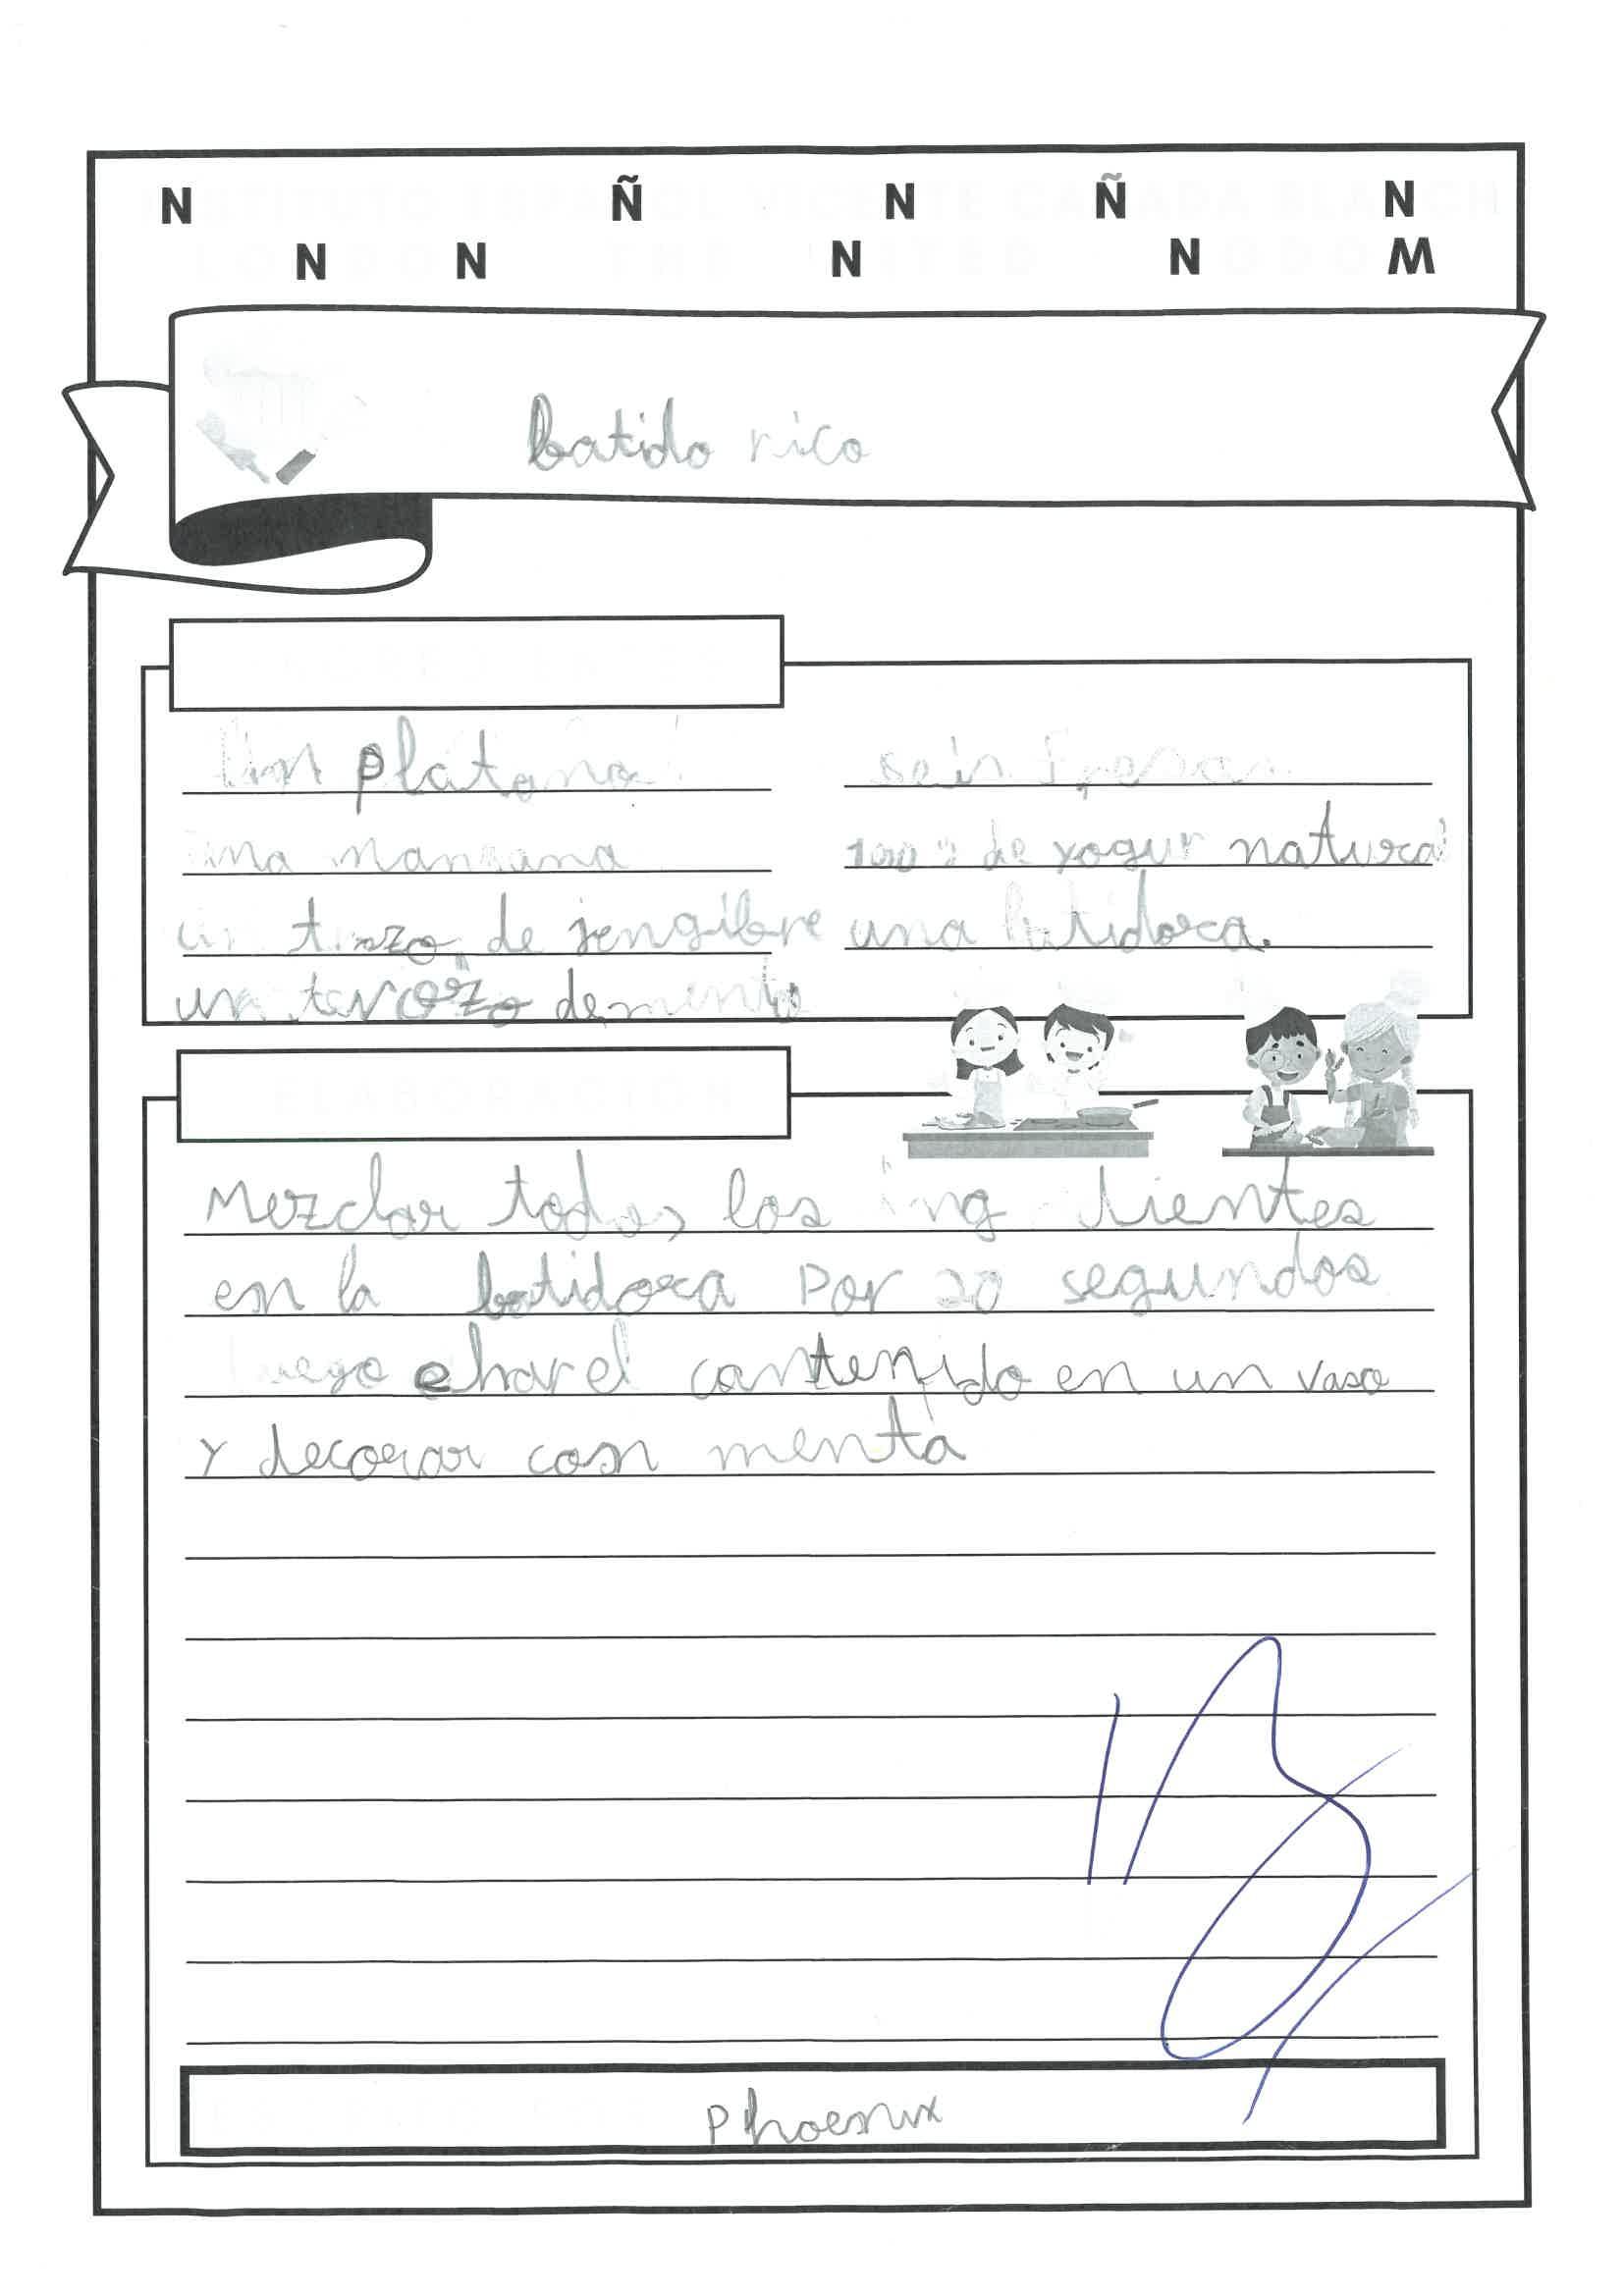 INSTITUTO ESPAÑOL VICENTE CAÑADA BLANCH
batido rico
Un platano
seis fresas
una manzana
100 g de yogur natural
un trozo de jengibre
una batidora.
un trozo de menta
ELABORACIÓN
Mezclar todos los ingredientes
en la batidora por 20 segundos
luego ehar el contenido en un vaso
y decorar con menta
Phoenix